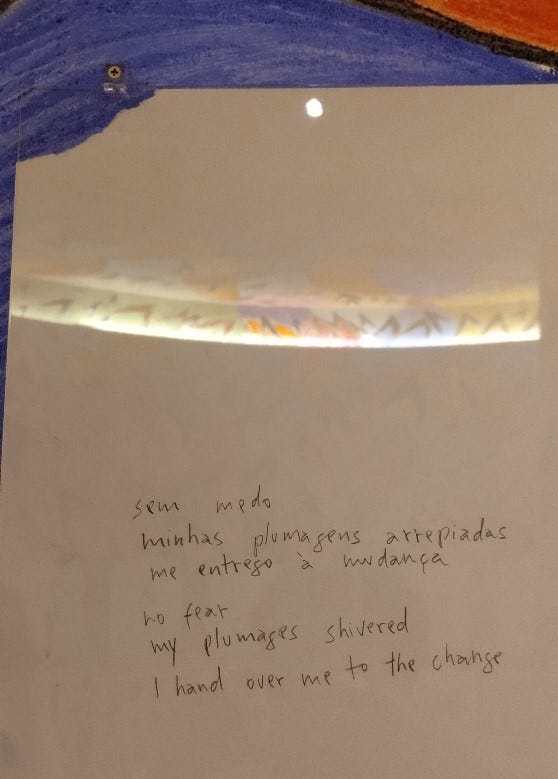 sem medo
minhas plumagens arrepiadas
me entrego à mudança
no fear
my plumages shivered
I hand over me to the change